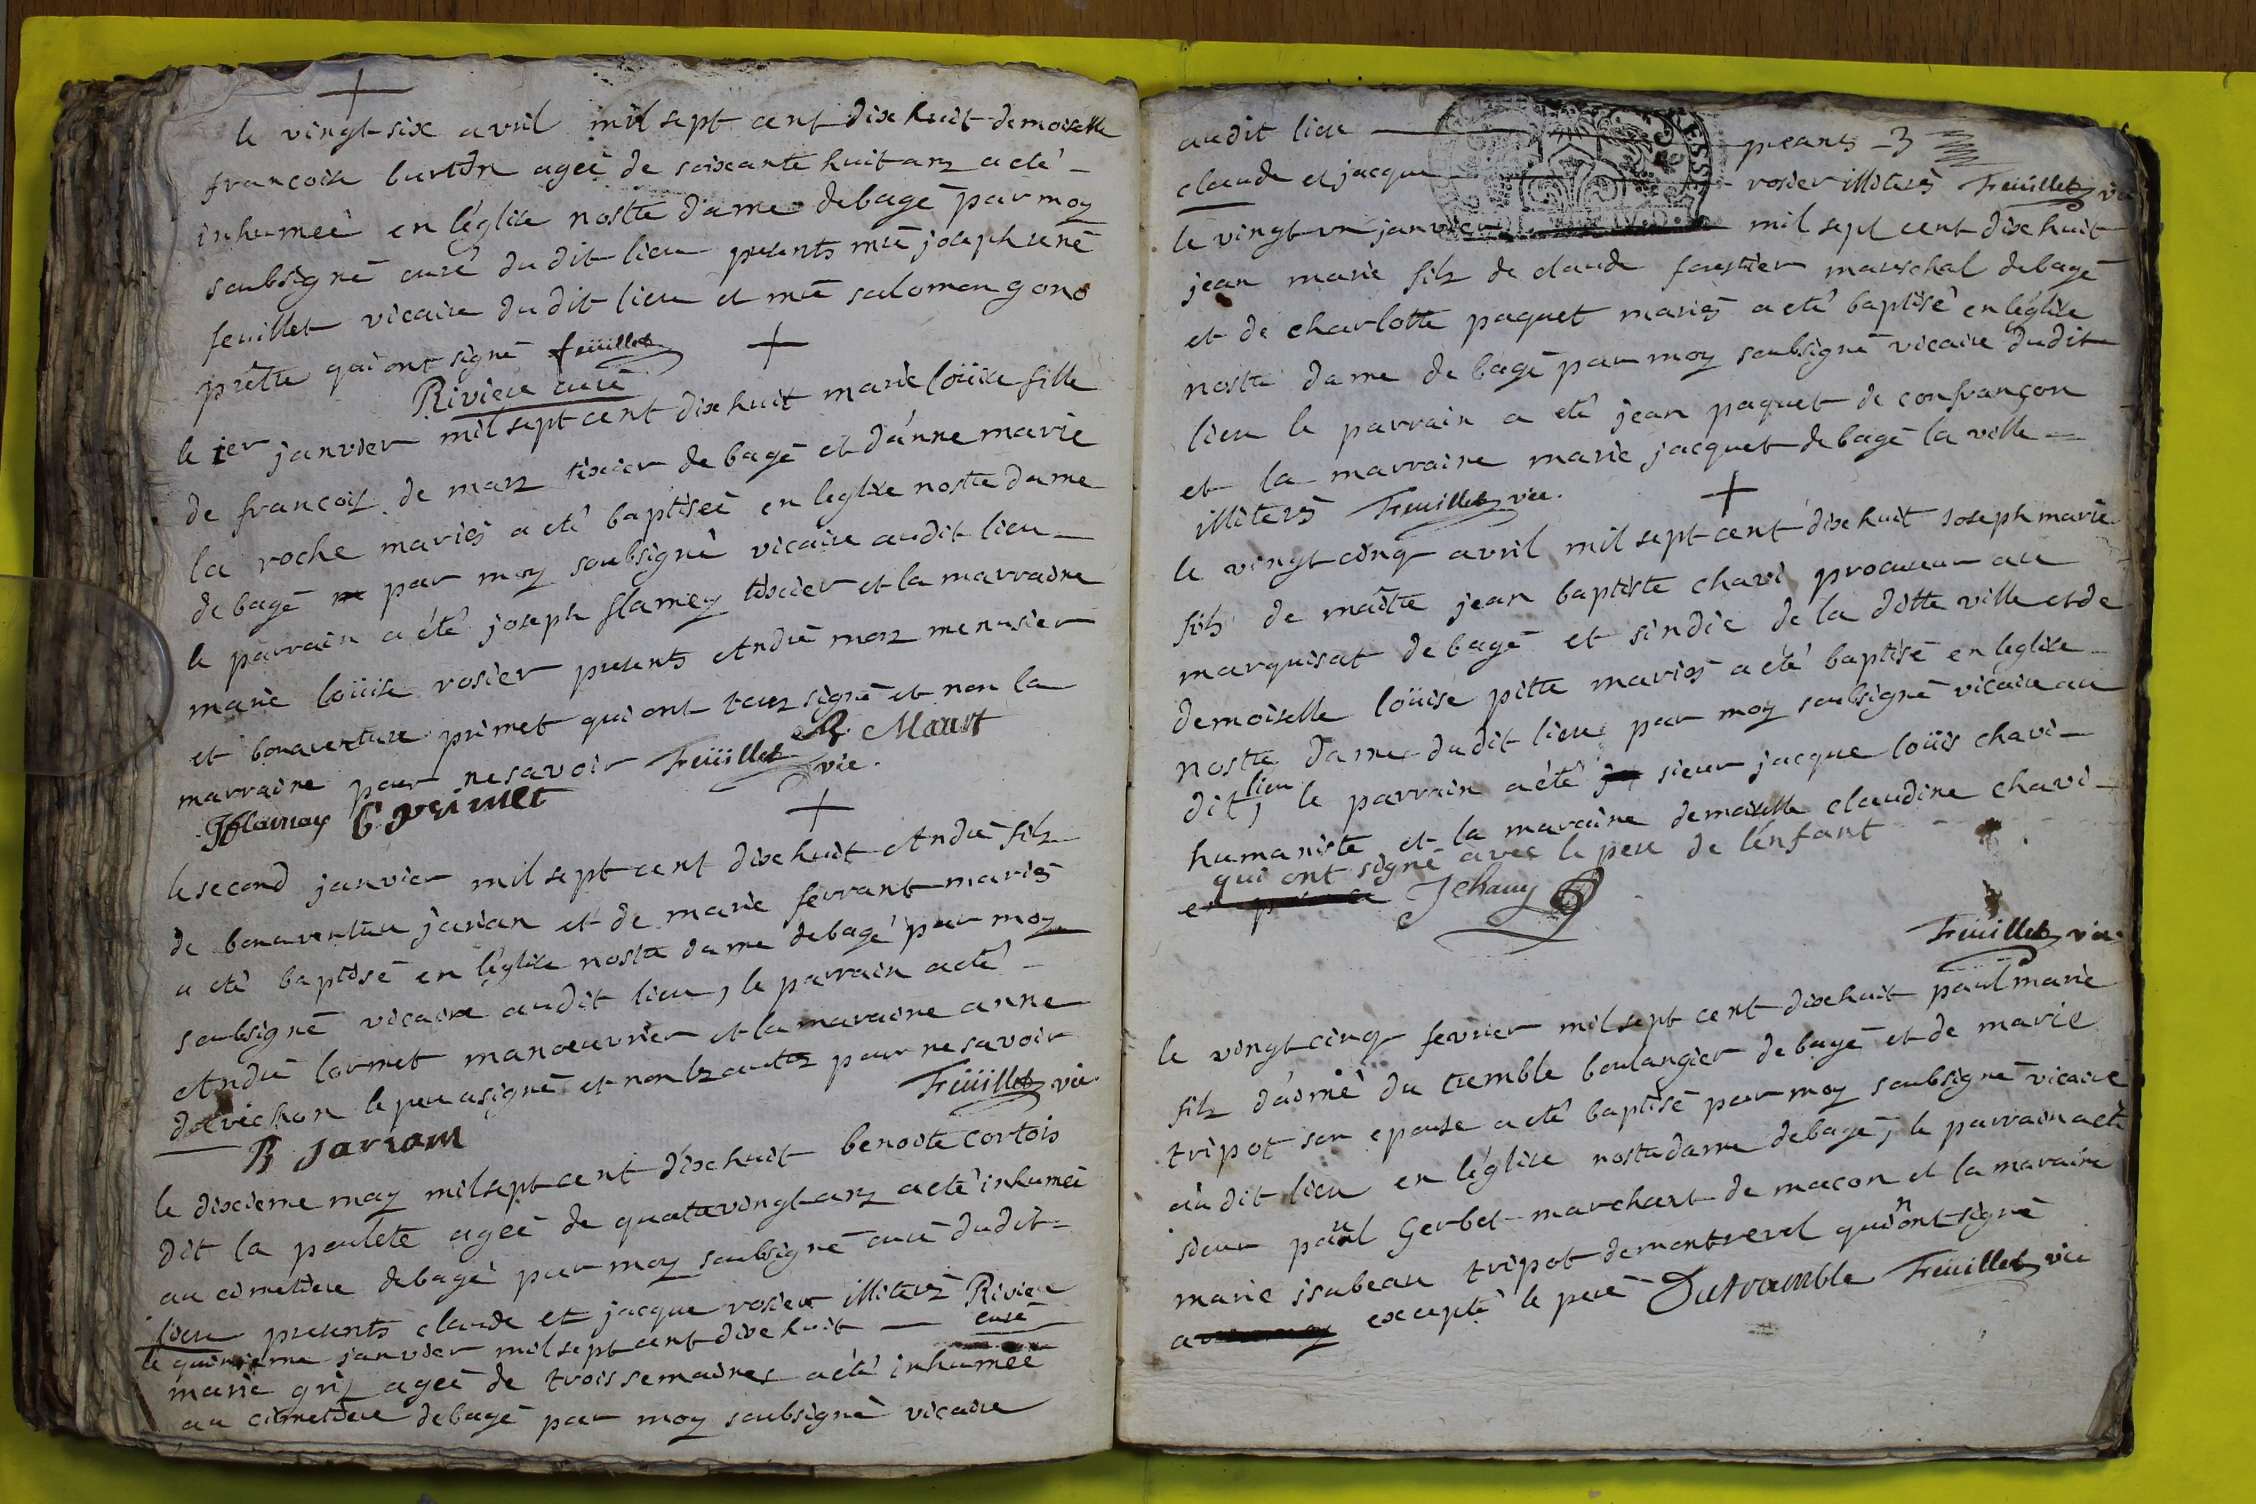 le vingt six avril mil sept cent dix huit demoiselle
francoise burton ageé de soixante huit anz a eté
inhumeé en l'églize nostre dame de bagé par moy
soubsigné curé du dit lieu presents mre joseph rené
feuillet vicaire du dit lieu et mre salomon gono
prêtre qui ont signé feüillet
Riviere curé
le 1er janvier mil sept cent dix huit marie loüise fille
de françois de marz tixier de bagé et d'anne marie
la roche mariés a eté baptiseé en leglize nostre dame
de bagé par moy soubsigné vicaire audit lieu
le parrain a eté joseph flamey tixier et la marraine
marie loüise rosier presents André morz menusier
et bonaventure primet qui ont touz signé et non la
marraine pour ne savoir Feüillet vic.
A. Maust
J flamay B primet
le second janvier mil sept cent dix huit André filz
de bonaventure jarian et de marie ferrant mariés
a eté baptisé en l'églize nostre dame de bagé par moy
soubsigné vicaire audit lieu, le parrain a eté
André lormet manoeuvrier et la maraine anne
dovichon le pere a signé et non lez autrz pour ne savoir
Feüillet vic.
B jariam
le dixieme may mil sept cent dix huit benoite cortois
dit la poulete ageé de quatrevingt anz a eté inhumeé
au cimetiere de bagé par moy soubsigné curé dudit
lieu presents claude et jacque rosier illiterz Riviere
curé
le quinzieme janvier mil sept cent dix huit
marie guy ageé de trois semaines a eté inhumeé
au cimetiere de bagé par moy soubsigné vicaire
audit lieu preants
claude et jacque rosier illiterés Feüillet vic
le vingt un janvier mil sept cent dix huit
jean marie filz de claude forestier mareschal de bagé
et de charlotte paquet mariés a eté baptisé en l'églize
nostre dame de bagé par moy soubsigné vicaire dudit
lieu le parrain a eté jean paquet de confrançon
et la marraine marie jacquet de bagé la ville
illiterés Feüillet vic.
le vingt cinq avril mil sept cent dix huit joseph marie
filz de maitre jean baptiste chavi procureur au
marquisat de bagé et sindic de la ditte ville et de
demoiselle loüise pitte mariés a eté baptisé en leglize
nostre dame dudit lieu par moy soubsigné vicaire au
dit lieu, le parrain a eté sieur jacque loüis chavi
humaniste et la maraine demoiselle claudine chavi
qui ont signé avec le pere de l'enfant
J chauy
Feüillet vic.
le vingt cinq fevrier mil sept cent dix huit paul marie
filz d'aimé du tremble boulangier de bagé et de marie
tripot son epouse a eté baptisé par moy soubsigné vicaire
audit lieu en l'églize nostre dame de bagé, le parrain a eté
sieur paul Gerbet marchant de macon et la maraine
marie isabeau tripot de montrevel qui n'ont signé
excepté le pere Dutramble Feüillet vic